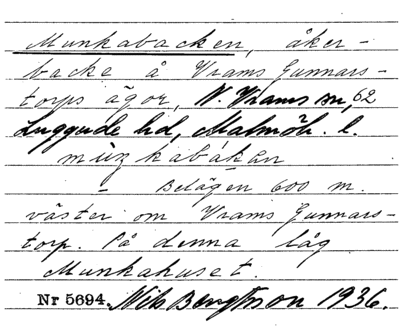 Munkabacken, åker-
backe å Vrams Gunnars-
torps ägor, N. Vrams sn, 62
Luggude hd, Malmöh. l.
mùŋkabákån
- Belägen 600 m.
väster om Vrams Gunnars-
torp. På denna låg
Munkahuset.
Nr 5694. Nils Bengtsson 1936.